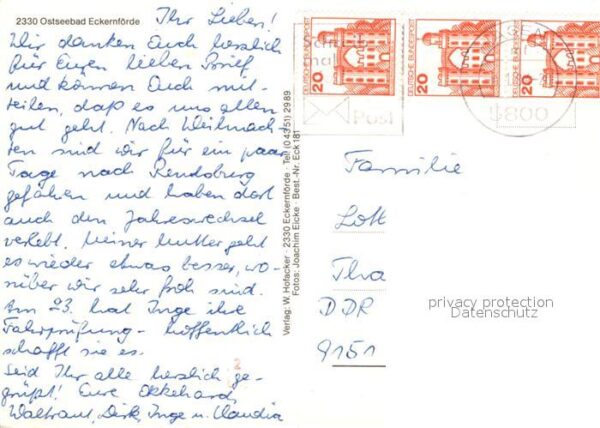 2330 Ostseebad Eckernförde
Ihr Lieben!
Wir danken Euch herzlich
für Euren lieben Brief
und können Euch mit-
teilen, daß es uns allen
gut geht. Nach Weihnach-
ten sind wir für ein paar
Tage nach Rendsburg
gefahren und haben dort
auch den Jahreswechsel
verlebt. Meiner Mutter geht
es wieder etwas besser, wo-
rüber wir sehr froh sind.
Am 23. hat Inge ihre
Fahrprüfung - hoffentlich
schafft sie es.
Seid Ihr alle herzlich ge-
grüßt! Eure Ekkehard,
Waltraut, Dirk, Inge u. Claudia
Verlag: W. Hofacker · 2330 Eckernförde · Tel. (04351) 2989
Fotos: Joachim Eicke · Best.-Nr. Eck 181
20
DEUTSCHE BUNDESPOST
20
DEUTSCHE BUNDESPOST
20
Post
Familie
Lott
DDR
9151
privacy protection
Datenschutz